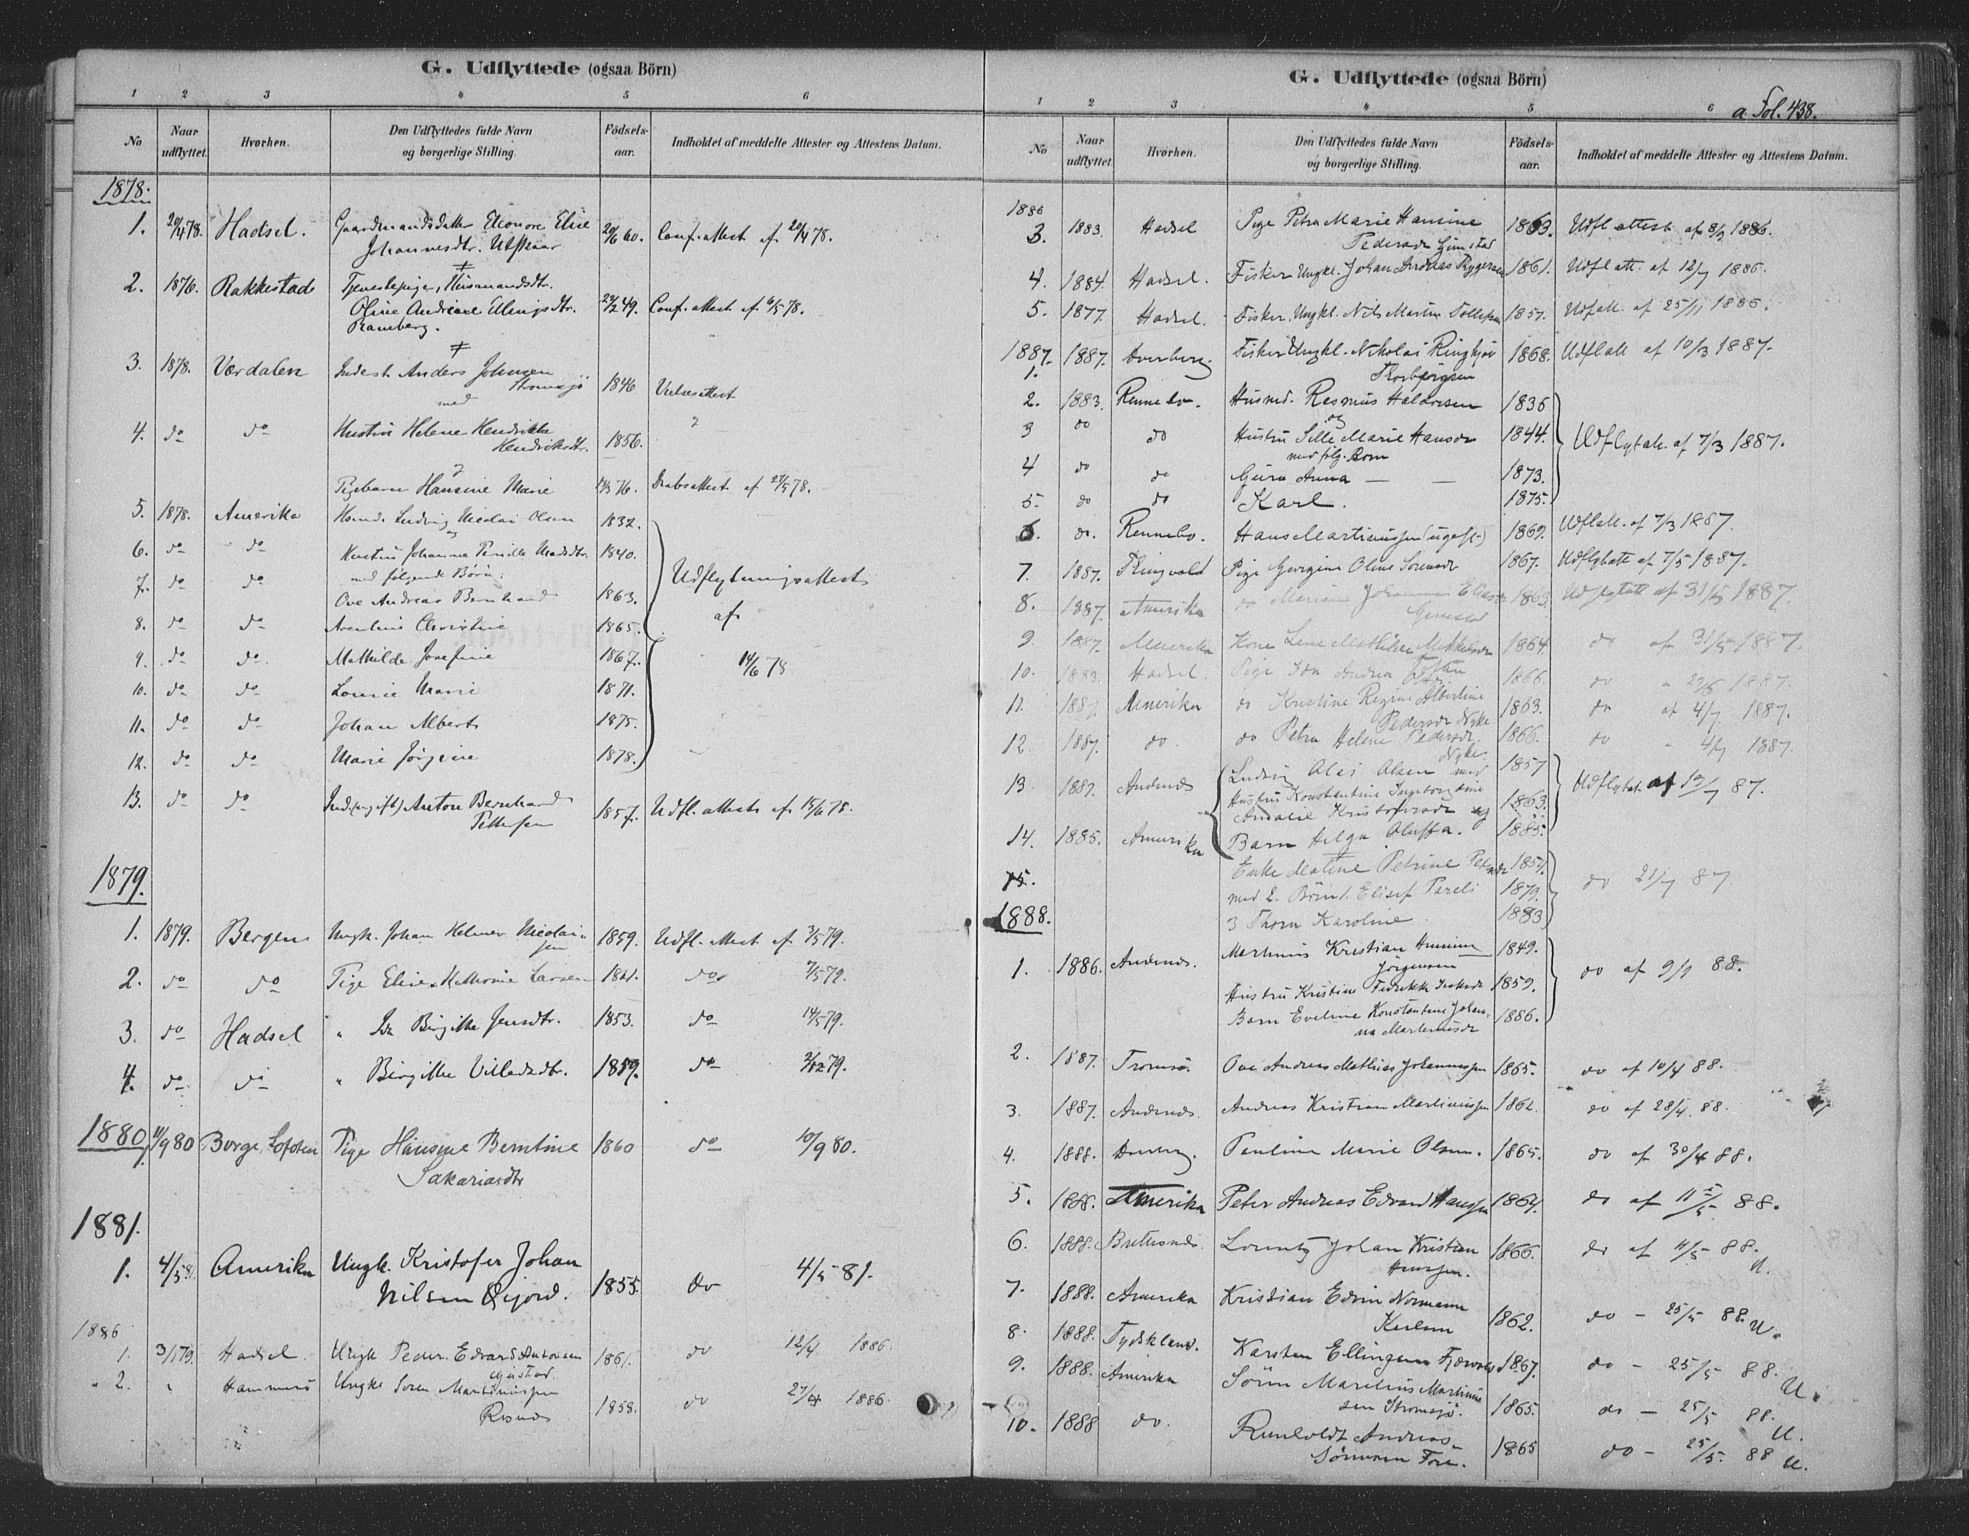 G. Udflyttede (ogsaa Börn)
1 2 3 4 5 6
No Naar udflyttet. Hvorhen. Den Udflyttedes fulde Navn og borgerlige Stilling. Födselsaar. Indholdet af meddelte Attester og Attestens Datum.
1878.
1. 20/4 78. Hadsel. Gaardmandsdatter Eleonore Elise 20/6 60. Conf. attest af 20/4 78.
Johannesdtr. Utskaar
2. 1876. Rakkestad Tjenestepige, Huusmandsdtr.
Oline Andreae Ellingsdtr. 49. Conf. attest af 6/5 78.
Ramberg.
3. 1878. Værdalen Inderst Anders Johnsen 1846 Vielsesattest
Stromsjö
med
4. do do Hustru Helene Hendrikke
Hendriksdtr. 1856.
Pigebarn Hansine Marie 76. Daabsattest af 29/5 78.
5. 1878. Amerika Huusmd. Ludvig Nicolai Olsen 1832.
6. do do Hustru Johanne Pernille Madsdtr. 1840.
med følgende Börn:
7. do do Ove Andreas Bernhard 1863. Udflytningsattest
8. do do Arentine Christine 1865. af
9. do do Mathilde Josefine 1867. 14/6 78
10. do do Lovise Marie 1871.
11. do do Johan Albert 1875.
12. do do Marie Jörgine 1878.
13. do do Ind. (ugift) Anton Bernhard
Pettersen 1857. Udfl. attest af 15/6 78.
1879.
1. 1879. Bergen Ungk. Johan Helmer Nicolai-
sen 1859. Udfl. attest af 3/5 79.
2. do do Pige Elise Kathrine Larsen do 7/5 79.
3. do Hadsel " Ida Birgitte Jensdtr. 1853. do 14/5 79.
4. do do " Birgitte Villadsdtr. 1859. do 2/12 79.
1880. 11/9 80 Borge, Lofoten Pige Hansine Berntine 1860 do 10/9 80.
Sakariasdtr
1881.
1. 4/5 81 Amerika Ungk. Kristofer Johan
Nilsen Qvjord. 1855. do 4/5 81.
1886
1. 3/1 79. Hadsel. Ungk Peder Edvard Antonsen 1861. do 12/4 1886.
Gjistad.
" 2. " Hammerö Ungk. Soren Martinussen
Risnes 1858. do 27/4 1886.
G. Udflyttede (ogsaa Börn)
a. Fol. 438.
1 2 3 4 5 6
No Naar udflyttet. Hvorhen. Den Udflyttedes fulde Navn og borgerlige Stilling. Födselsaar. Indholdet af meddelte Attester og Attestens Datum.
1886
3. 1883. Hadsel Pige Petra Marie Hansine 1863. Udfl attest af 8/3 1886.
Pedersdr Gimstad
4. 1884. Hadsel. Fisker Ungkl. Johan Andreas Rygersen 1861. Udfl att. af 12/7 1886.
5. 1877. Hadsel. Fisker Ungkl. Nils Martin Tollefsen 1857. Udf att. af 25/11 1886.
1887.
1. 1887. Dverberg. Fisker Ungkl. Nikolai Ringkjöe 1868. Udfl att af 10/3 1887.
Thorbjørgsen
2. 1883. Rennebo. Husmd. Rasmus Haldorsen 1836
og
3 do do Hustru Sille Marie Hansdr 1844. Udflytatt. af 7/3 1887.
med følg. Born
4 do do Guro Anna — — 1873.
5. do do Karl. 1875.
6. do. Rennebo. Hans Martinussen (ugift) 1869. Udflatt. af 7/3 1887.
7. 1887. Tingvold Pige Georgine Oline Sorensdr 1867. Udflytatt af 7/5 1887.
8. 1887. Amerika do Mariane Johanna Eliasdr 1863. Udflytatt af 31/5 1887.
Gimstad
9. 1887. Amerika Kone Lene Mathilde Mikkelsdr 1864 do af 31/5 1887.
10. 1883. Hadsel. Pige Ida Andrea Toften 1866. do " 29/6 1887.
11. 1887. Amerika do Kristine Regine Albertine 1863. do af 4/7 1887.
Pedersdr Nyke
12. 1887. do. do Petra Helene Pedersdr. 1866. do " 4/7 1887.
Nyke
13 1887. Andenæs Ludvig Olai Olsen med 1857
Hustru Konstantine Ingeborg Udflytat. af 12/7 87.
Amalie Kristofersdr og 1863.
14. 1885. Amerika Barn Helga Oluffa. 1885.
15. Enke Martine Petrine Pedersdr 1854.
med 2 Börn 1. Elisef Parelii 1879. do 21/7 87
1888. 3 Thora Karoline 1883
1. 1886. Andenæs. Martinus Kristian 1849.
Jörgensen
Hustru Kristine Fredrikke 1859. do af 9/1 88.
Barn Eveline Konstantine Johan-
na Martinusdr 1886.
2. 1887. Tromsö. Ove Andreas Mathias Johannessen 1865. do af 10/4 88.
3. 1887. Andenæs. Andreas Kristian Martinussen 1862. do af 28/4. 88.
4. 1888. Dverberg. Pauline Marie Olsen. 1865. do af 30/4 88.
5. 1888. Amerika Peter Andreas Edvard Hanssen 1864. do af 11/5 88.
6. 1888. Brettesnæs. Lorentz Johan Kristian 1866. do af 11/5 88.
Hanssen. U.
7. 1888. Amerika Kristian Edvin Normann
Karlsen 1862. do - 25/5 88. U.
8. 1888. Tydskland. Karsten Ellingsen 1867. do - 25/5 88. U.
9. 1888. Amerika Sörin Marelius Martinus
sen Stromsjö. 1865. do - 25/5 88. U.
10. 1888 do. Runholdt Andreas
Sörensen Fore. 1865 do - 25/5. 88 U.